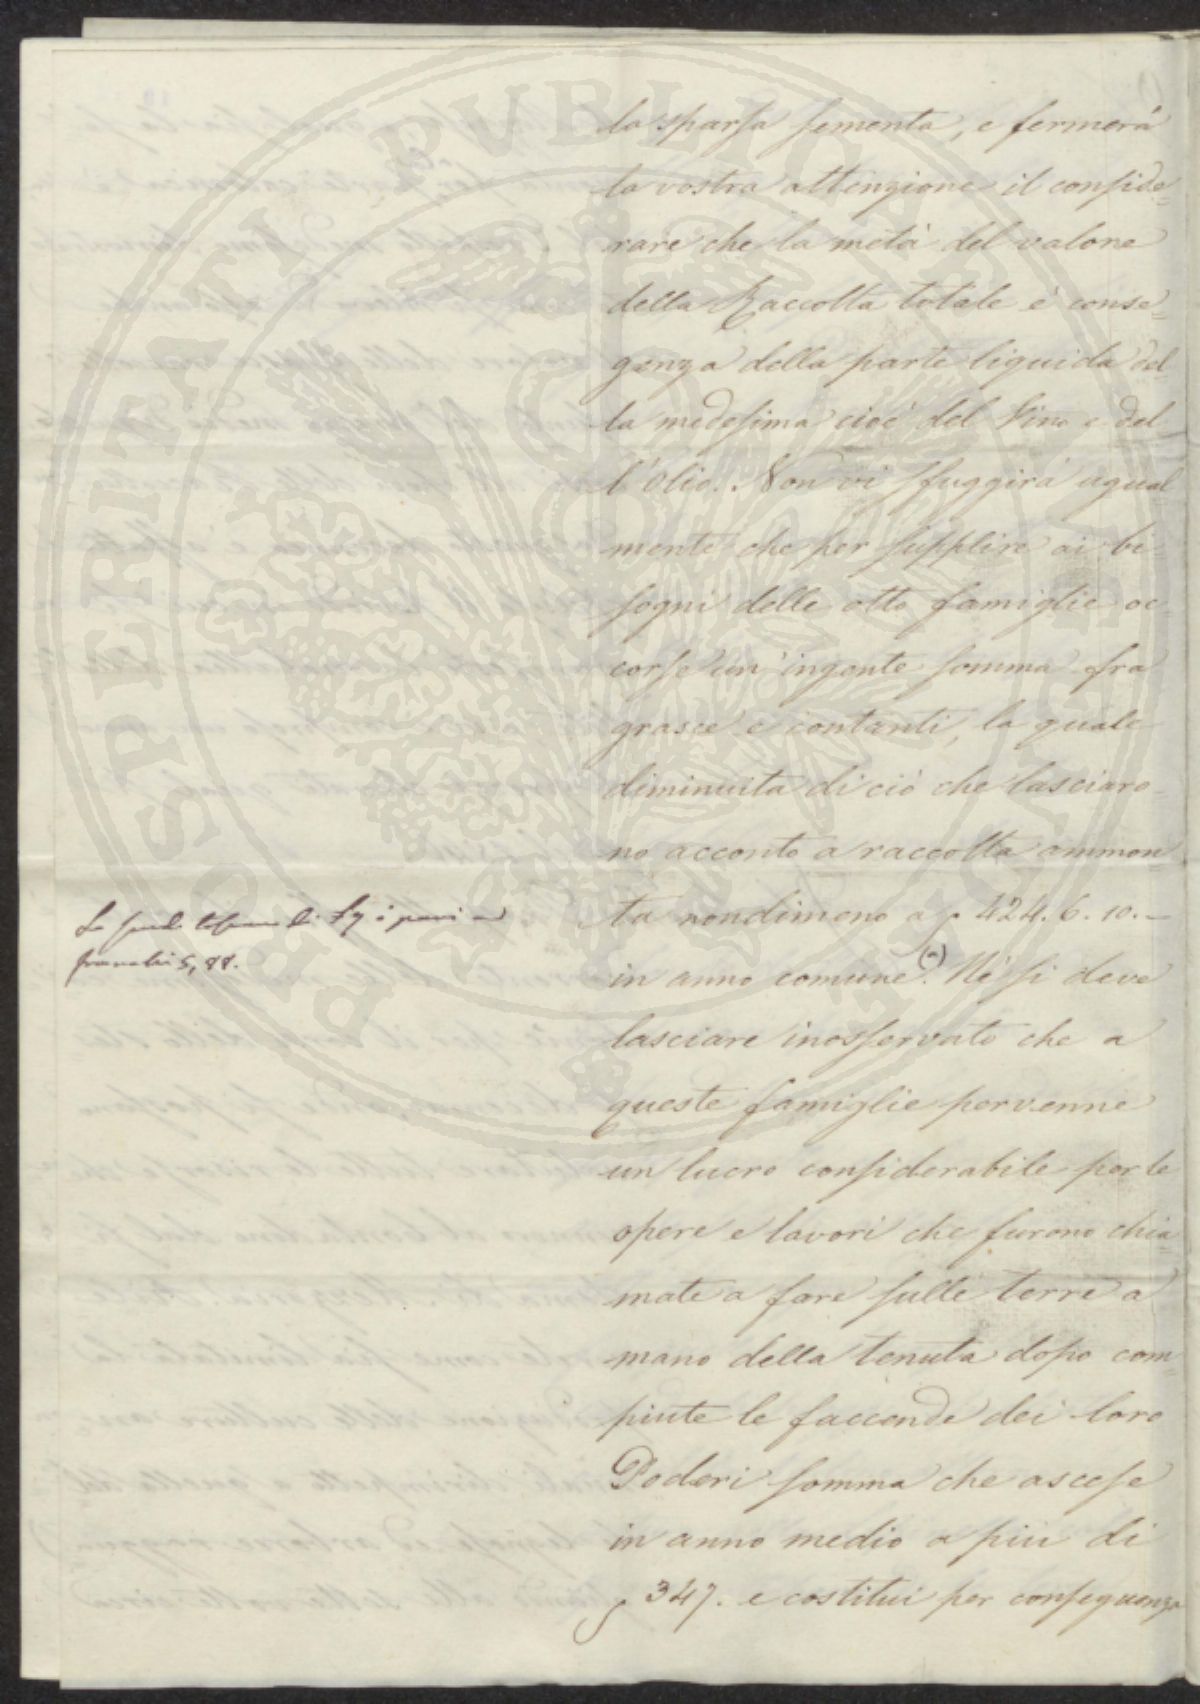 la sparsa sementa, e fermerà
la vostra attenzione il conside=
rare che la metà del valore
della Raccolta totale è conse=
genza della parte liquida del=
la medesima cioè del Vino e del
l'Olio. Non vi sfuggirà ugual
mente che per supplire ai bi
sogni delle otto famiglie oc
corse un'ingente somma fra
grasce e contanti, la quale
diminuita di ciò che lasciaro=
no acconto a raccolta ammon
ta nondimeno a 424. 6. 10. —
in anno comune (a). Nè si deve
lasciare inosservato che a
queste famiglie pervenne
un lucro considerabile per le
opere e lavori che furono chia=
mate a fare sulle terre a
mano della tenuta dopo com=
piute le faccende dei loro
Poderi somma che ascese
in anno medio a più di
347. e costituì per conseguenza
Lo scudo toscano di £ 7 è pari a
franchi 5,88.
PROSPERITATI PVBLICAE AVGENDAE